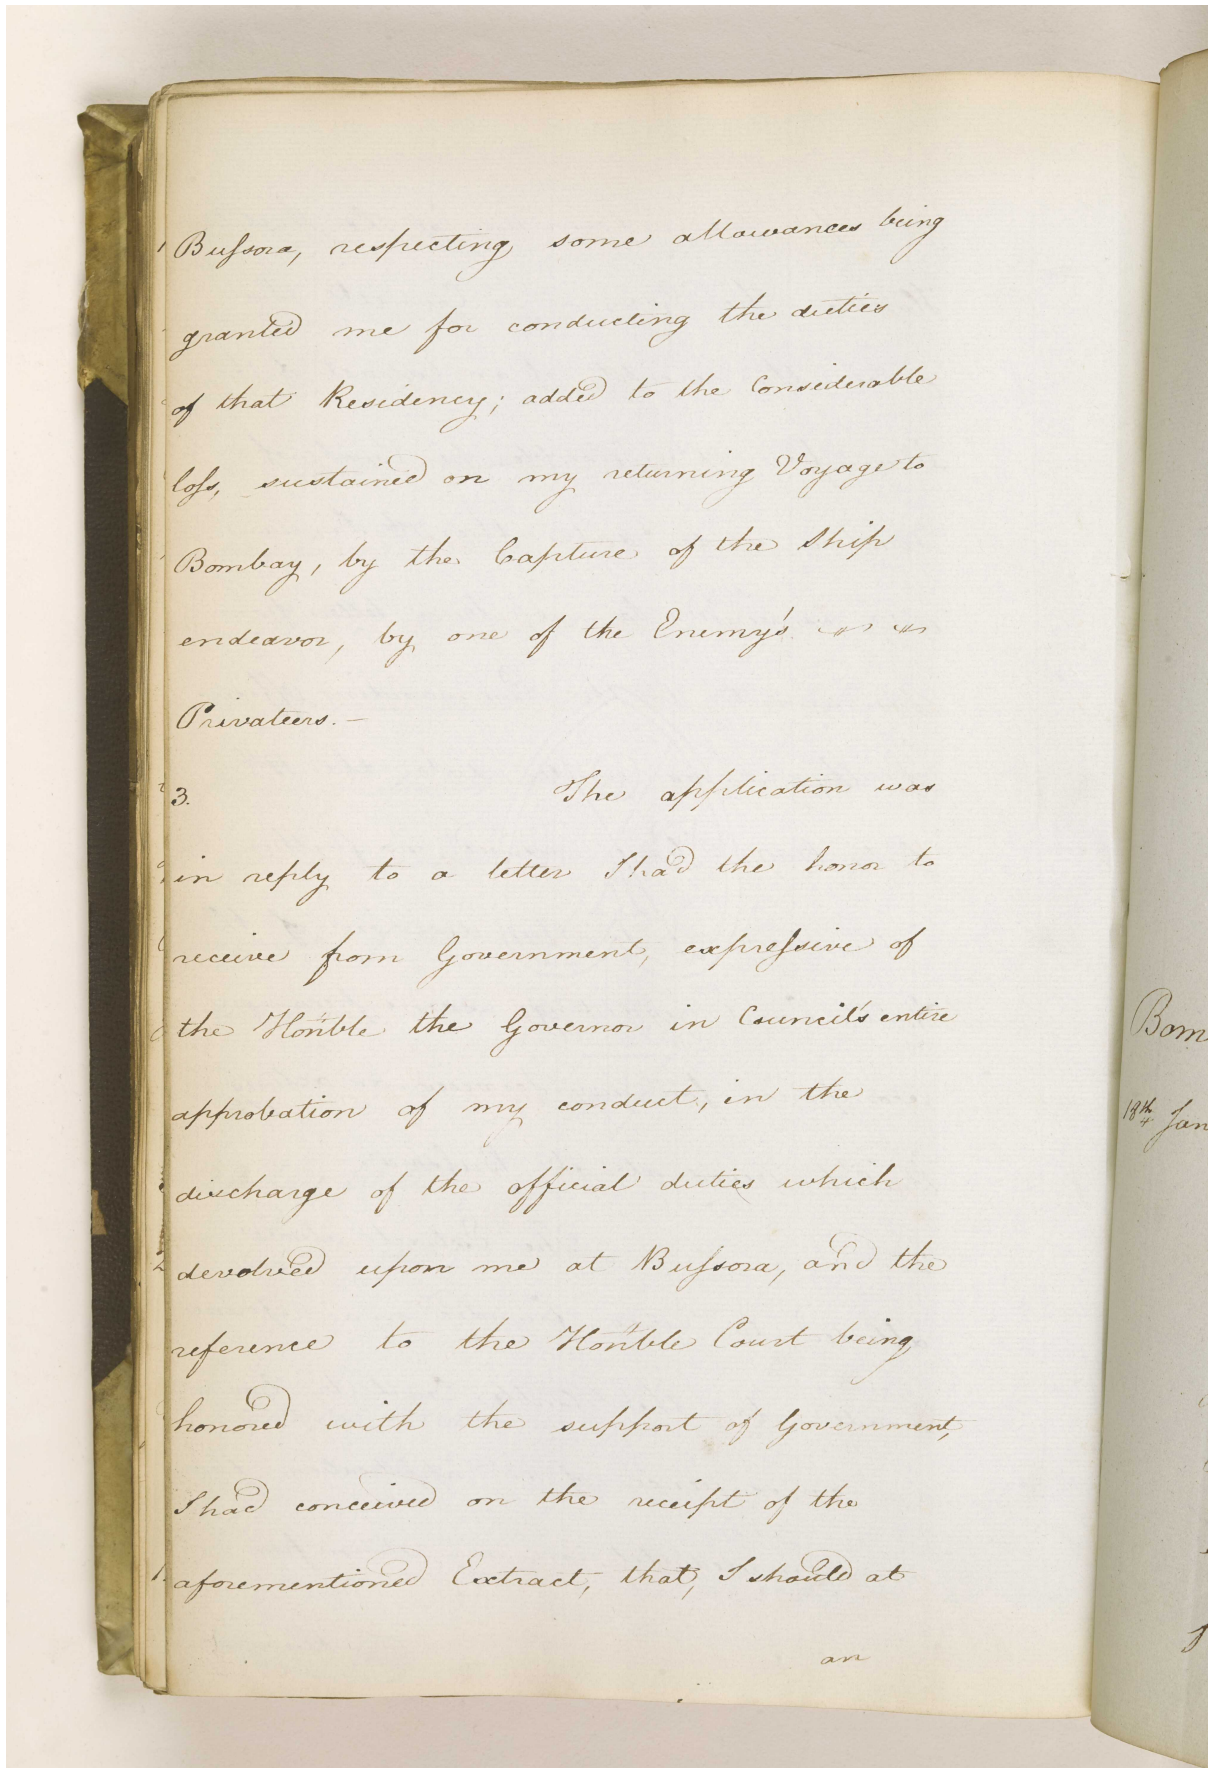 Bußsora, respecting some allowances being
granted me for conducting the duties
of that Residency; added to the Considerable
loss, sustained on my returning Voyage to
Bombay, by the Capture of the Ship
endeavor, by one of the Enemy's
Privateers. —
3. The application was
in reply to a letter I had the honor to
receive from Government, expressive of
the Hon'ble the Governor in Council's entire
approbation of my conduct, in the
discharge of the official duties which
devolved upon me at Bussora, and the
reference to the Hon'ble Court being
honored with the support of Government,
I had conceived on the receipt of the
aforementioned Extract, that, I should at
an
Bom
18th Jan